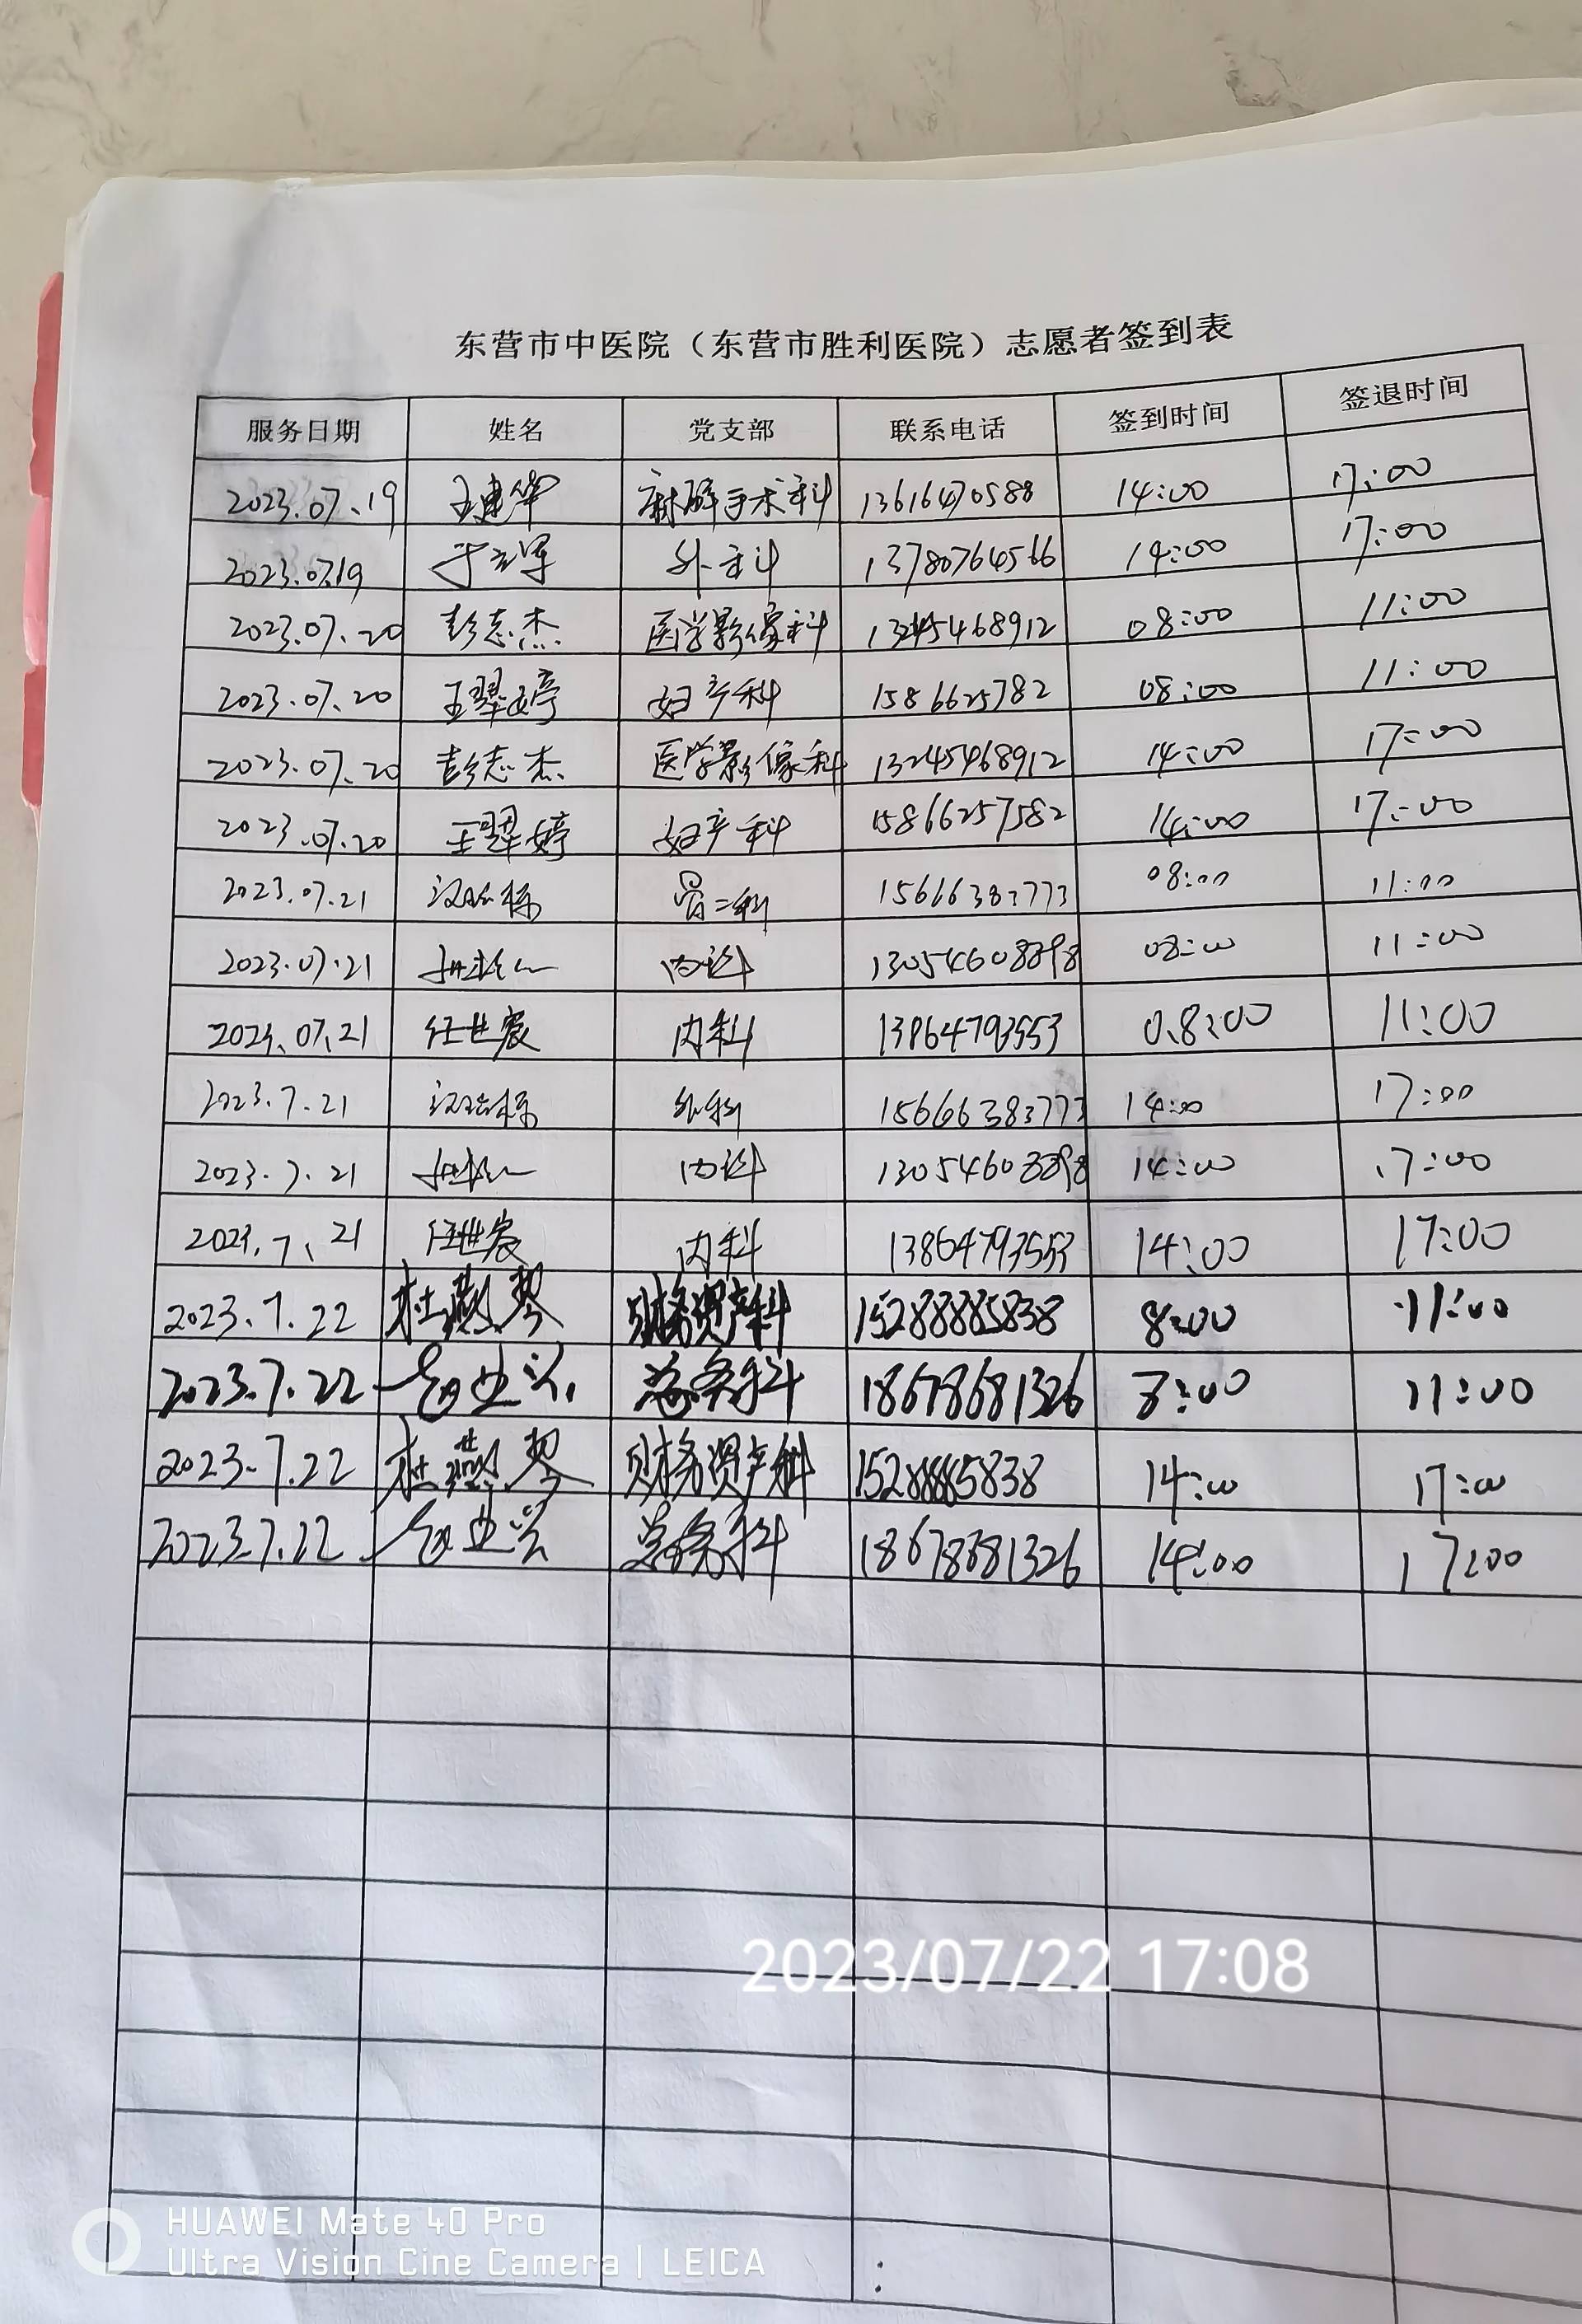 东营市中医院（东营市胜利医院）志愿者签到表
服务日期 姓名 党支部 联系电话 签到时间 签退时间
2023.07.19 王建华 麻醉手术科 13616470588 14:00 17:00
2023.07.19 外科 13780764566 14:00 17:00
2023.07.20 彭志杰 医学影像科 13245468912 08:00 11:00
2023.07.20 王翠婷 妇产科 1586625782 08:00 11:00
2023.07.20 彭志杰 医学影像科 13245468912 14:00 17:00
2023.07.20 王翠婷 妇产科 15866257582 14:00 17:00
2023.07.21 骨二科 15666383773 08:00 11:00
2023.07.21 内科 13054608898 08:00 11:00
2023.07.21 任世宸 内科 13864793553 0.8:00 11:00
2023.7.21 外科 15666383773 14:00 17:00
2023.7.21 内科 13054608898 14:00 17:00
2023.7.21 任世宸 内科 13864793553 14:00 17:00
2023.7.22 杜燕琴 财务资产科 15288885838 8:00 11:00
2023.7.22 总务科 18678681326 8:00 11:00
2023.7.22 杜燕琴 财务资产科 15288885838 14:00 17:00
2023.7.22 总务科 18678681326 14:00 17:00
2023/07/22 17:08
HUAWEI Mate 40 Pro
Ultra Vision Cine Camera | LEICA